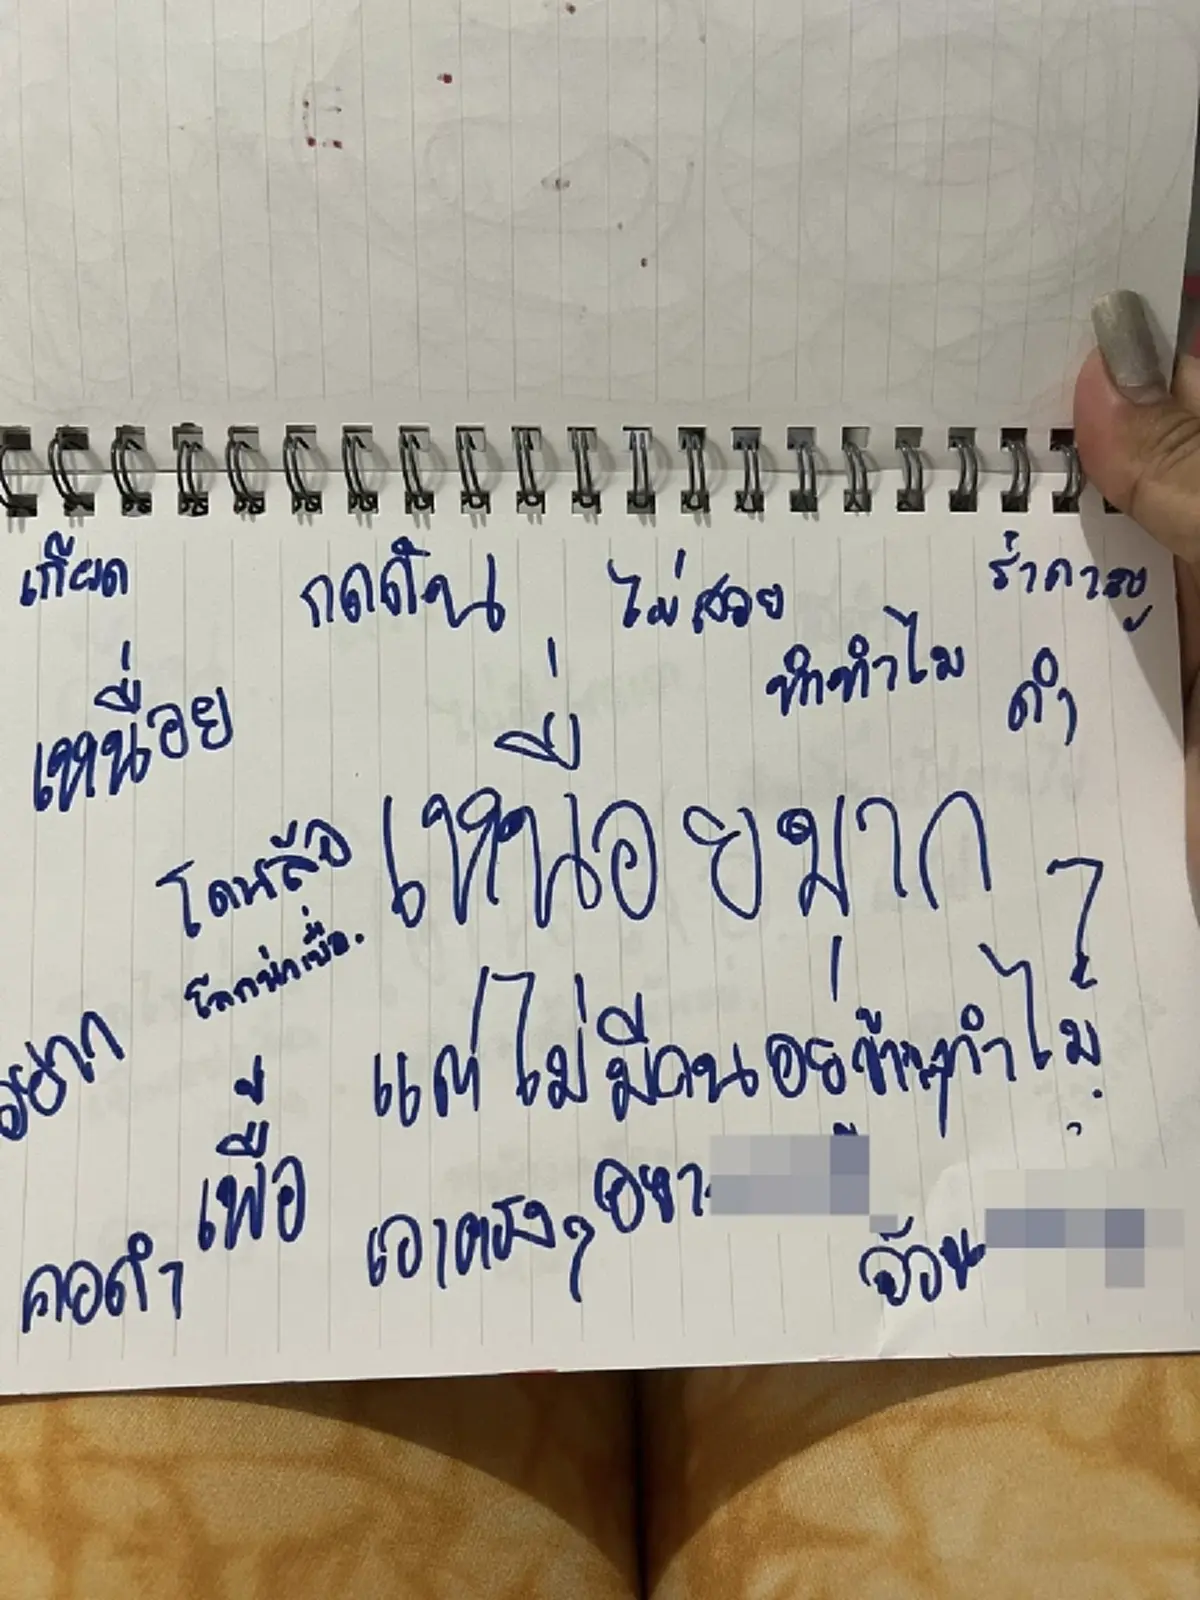 เกียด กดดัน ไม่สวย รำคาญ
เหนื่อย ทำทำไม ดำ
เหนื่อยมาก
โดนล้อ
โลกน่าเบื่อ.
อยาก แต่ไม่มีคนอยู่ข้างๆทำไม
เพื่อ
คอดำ เอาตรงๆ อยา
อ้วน